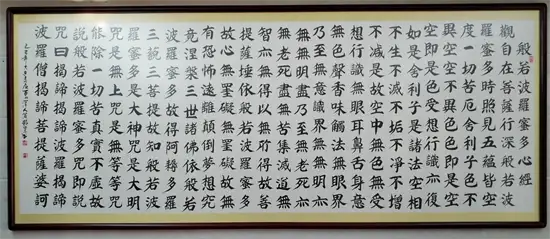 般若波羅蜜多心經
觀自在菩薩行深般若波
羅蜜多時照見五蘊皆空
度一切苦厄舍利子色不
異空空不異色色即是空
空即是色受想行識亦復
如是舍利子是諸法空相
不生不滅不垢不淨不增
不減是故空中無色無受
想行識無眼耳鼻舌身意
無色聲香味觸法無眼界
乃至無意識界無無明亦
無無明盡乃至無老死亦
無老死盡無苦集滅道無
智亦無得以無所得故菩
提薩埵依般若波羅蜜多
故心無罣礙無罣礙故無
有恐怖遠離顛倒夢想究
竟涅槃三世諸佛依般若
波羅蜜多故得阿耨多羅
三藐三菩提故知般若波
羅蜜多是大神咒是大明
咒是無上咒是無等等咒
能除一切苦真實不虛故
說般若波羅蜜多咒即說
咒曰揭諦揭諦波羅揭諦
波羅僧揭諦菩提薩婆訶